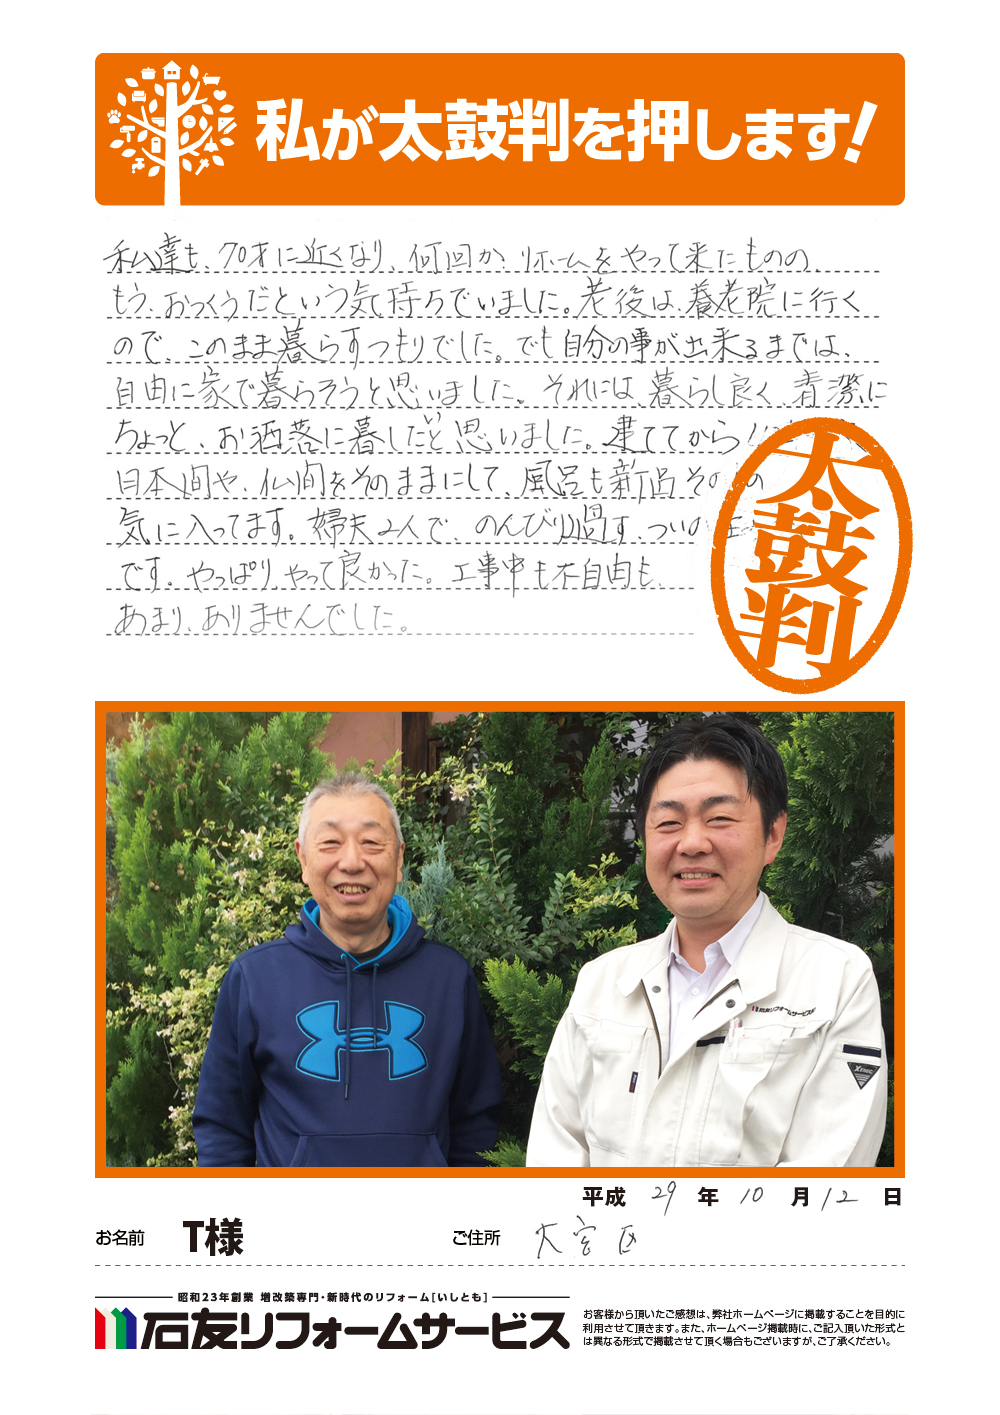 私が太鼓判を押します!
私達も、70才に近くなり、何回か、リホームをやって来たものの、
もう、おっくうだという気持ちでいました。老後は、養老院に行く
ので、このまま暮らすつもりでした。でも自分の事が出来るまでは、
自由に家で暮らそうと思いました。それには、暮らし良く、清潔に
ちょっと、お洒落に暮したいと思いました。建ててから
日本間や、仏間をそのままにして、風呂も新品その
気に入ってます。婦夫2人で、のんびり過す、ついの
です。やっぱり、やって良かった。工事中も不自由も、
あまり、ありませんでした。
太鼓判
石友リフォームサービス
XEBEC
平成 29 年 10 月 12 日
お名前 T様 ご住所 大宮区
昭和23年創業 増改築専門・新時代のリフォーム[いしとも]
石友リフォームサービス
お客様から頂いたご感想は、弊社ホームページに掲載することを目的に
利用させて頂きます。また、ホームページ掲載時に、ご記入頂いた形式と
は異なる形式で掲載させて頂く場合もございますが、ご了承ください。